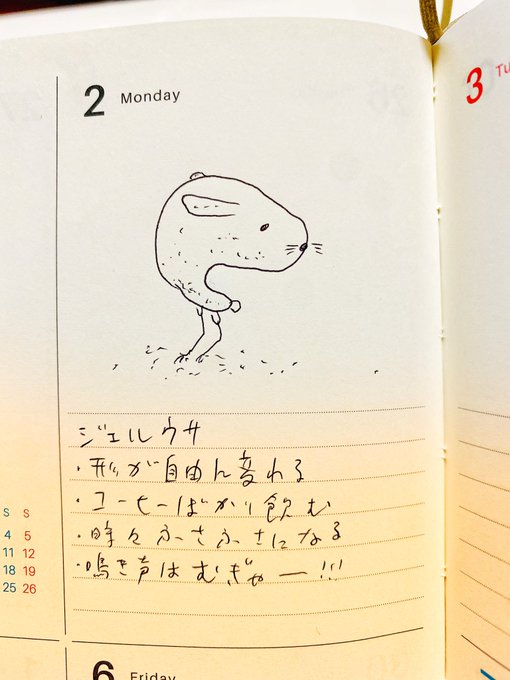 2 Monday
3 Tu
ジェルウサ
・形が自由に変わる
・コーヒーばかり飲む
・時々ふさふさになる
・鳴き声はむぎゃー!!!
S S
4 5
11 12
18 19
25 26
6 Friday